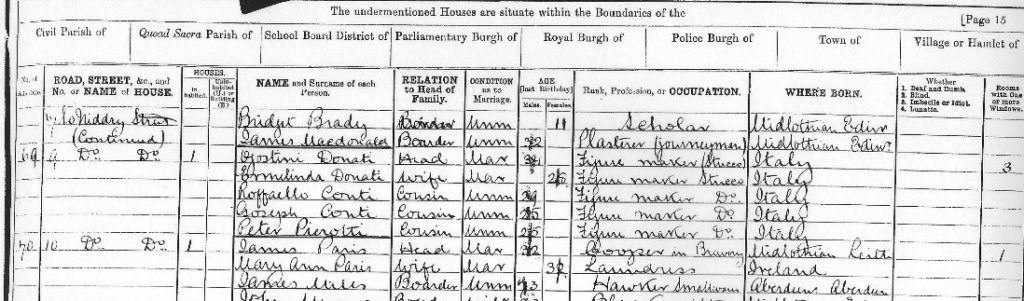 The undermentioned Houses are situate within the Boundaries of the
[Page 15
Civil Parish of Quoad Sacra Parish of School Board District of Parliamentary Burgh of Royal Burgh of Police Burgh of Town of Village or Hamlet of
No. of ROAD, STREET, &c., and No. or NAME of HOUSE. HOUSES. Inhabited. NAME and Surname of each Person. RELATION to Head of Family. CONDITION as to Marriage. AGE [last Birthday] Males. Females. Rank, Profession, or OCCUPATION. WHERE BORN. Whether 1. Deaf and Dumb. 2. Blind. 3. Imbecile or Idiot. 4. Lunatic. Rooms with One or more Windows.
Niddry Street Bridget Brady Boarder Unm 11 Scholar Midlothian Edinr
(Continued) James Macdonald Boarder Unm Plasterer (journeyman) Midlothian Edinr
69 9 Do Do 1 Donati Head Mar Figure maker (Stucco) Italy 3
Ermilinda Donati Wife Mar Figure maker Stucco Italy
Raffaello Conti Cousin Unm Figure maker Do Italy
Joseph Conti Cousin Unm Figure maker Do Italy
Peter Pierotti Cousin Unm Figure maker Do Italy
70 10 Do Do 1 James Paris Head Mar in Brewery Midlothian Leith 1
Mary Ann Paris Wife Mar Laundress Ireland
James Boarder Unm Hawker Smallwares Aberdeen Aberdeen